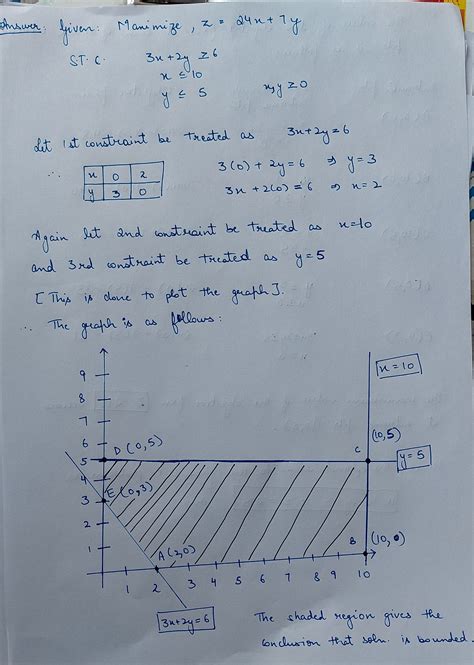 Answer: Given: Maximize, z = 24x + 7y
ST. C. 3x + 2y ≥ 6
x ≤ 10
y ≤ 5 x, y ≥ 0
Let 1st constraint be treated as 3x + 2y = 6
∴ x 0 2
y 3 0
3(0) + 2y = 6 ⇒ y = 3
3x + 2(0) = 6 ⇒ x = 2
Again let 2nd constraint be treated as x = 10
and 3rd constraint be treated as y = 5
[This is done to plot the graph].
∴ The graph is as follows:
x = 10
9
8
7
6
5
4
3
2
1
D (0,5)
(10,5)
C
y = 5
E (0,3)
A (2,0)
B (10,0)
1 2 3 4 5 6 7 8 9 10
3x + 2y = 6
The shaded region gives the
conclusion that soln. is bounded.